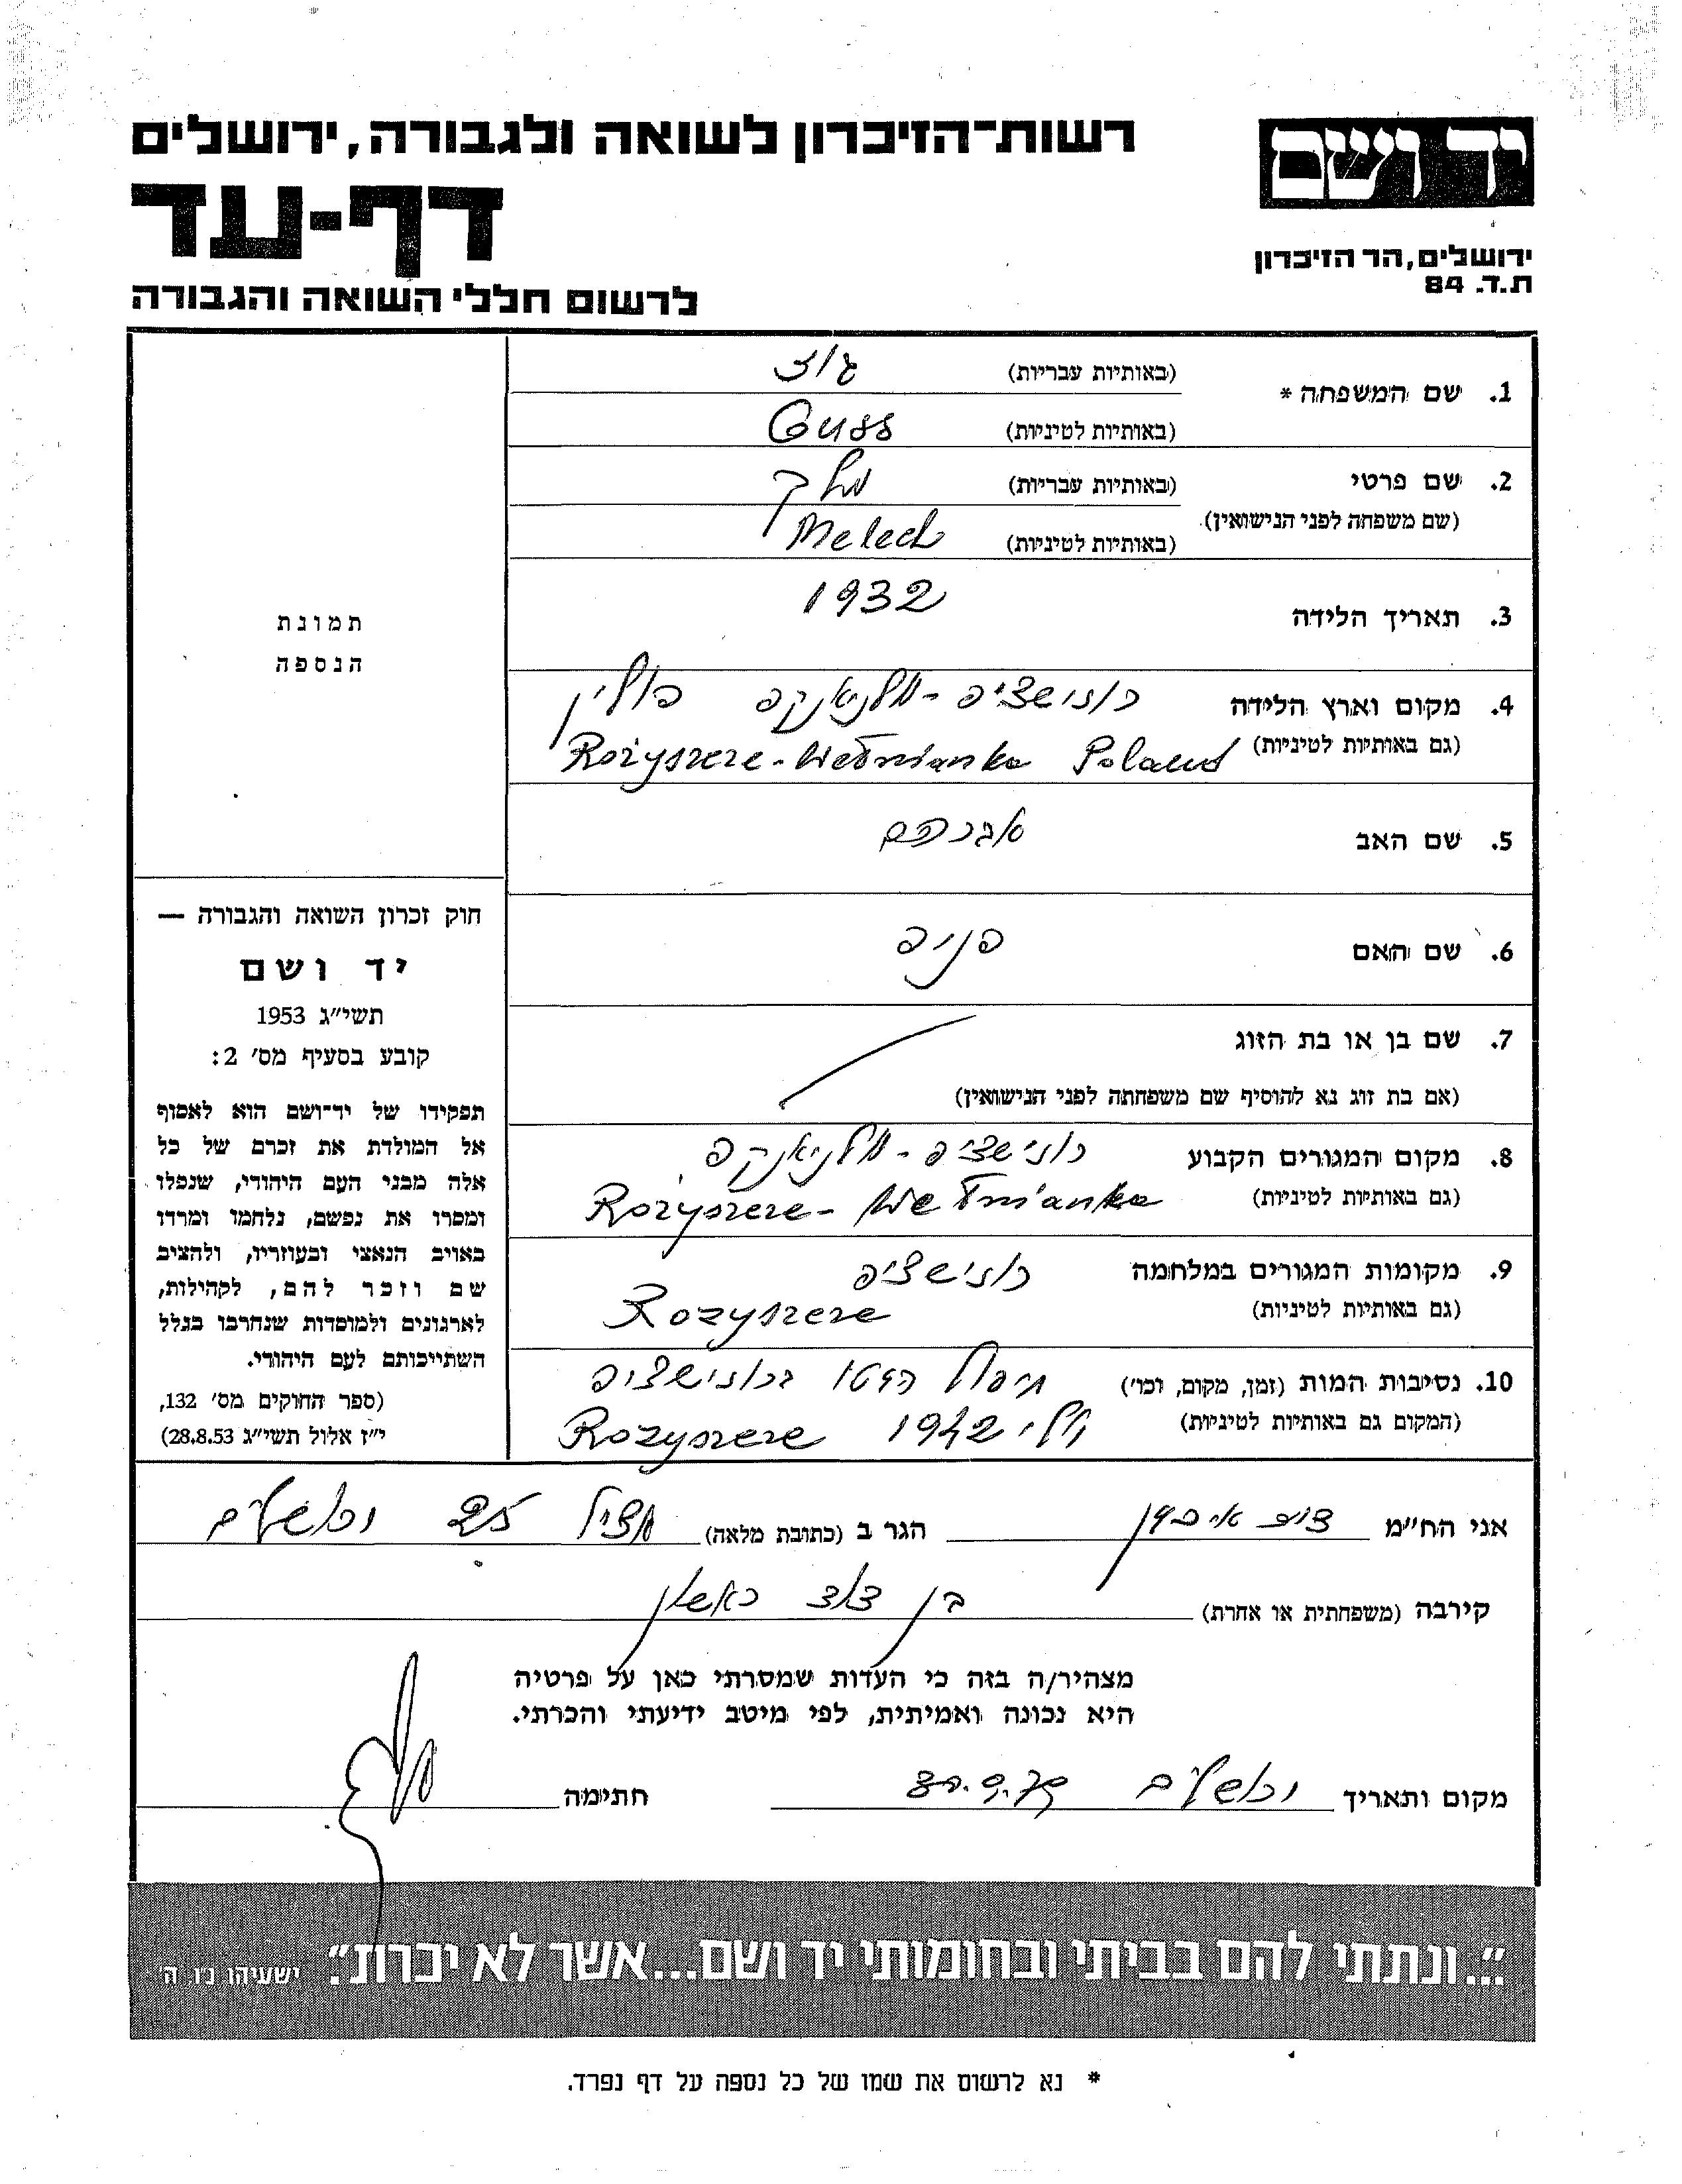 רשות־הזיכרון לשואה ולגבורה, ירושלים
דף-עד
לרשום חללי השואה והגבורה
יד ושם
ירושלים, הר הזיכרון
ת.ד. 84
1. שם המשפחה * (באותיות עבריות)
(באותיות לטיניות) Guss
2. שם פרטי (באותיות עבריות) מלך
(שם משפחה לפני הנישואין) (באותיות לטיניות) Melech
3. תאריך הלידה 1932
4. מקום וארץ הלידה רוזישצ'ה - וולניאנקה פולין
(גם באותיות לטיניות) Rożyszcze - Wełnianka Poland
5. שם האב אברהם
6. שם האם פניה
7. שם בן או בת הזוג
(אם בת זוג נא להוסיף שם משפחתה לפני הנישואין)
8. מקום המגורים הקבוע
(גם באותיות לטיניות) Rożyszcze - Wełnianka
9. מקומות המגורים במלחמה
(גם באותיות לטיניות) Rozyszcze
10. נסיבות המות (זמן, מקום, וכו') חיסול הגטו
(המקום גם באותיות לטיניות) יולי 1942 Rozyszcze
תמונת
הנספה
חוק זכרון השואה והגבורה —
יד ושם
תשי"ג 1953
קובע בסעיף מס' 2:
תפקידו של יד־ושם הוא לאסוף
אל המולדת את זכרם של כל
אלה מבני העם היהודי, שנפלו
ומסרו את נפשם, נלחמו ומרדו
באויב הנאצי ובעוזריו, ולהציב
שם וזכר להם, לקהילות,
לארגונים ולמוסדות שנחרבו בגלל
השתייכותם לעם היהודי.
(ספר החוקים מס' 132,
י"ז אלול תשי"ג 28.8.53)
אני הח"מ הגר ב (כתובת מלאה) 25 ירושלים
קירבה (משפחתית או אחרת) בן דוד ראשון
מצהיר/ה בזה כי העדות שמסרתי כאן על פרטיה
היא נכונה ואמיתית, לפי מיטב ידיעתי והכרתי.
מקום ותאריך ירושלים חתימה
"...ונתתי להם בביתי ובחומותי יד ושם...אשר לא יכרת". ישעיהו נ"ו, ה'
* נא לרשום את שמו של כל נספה על דף נפרד.